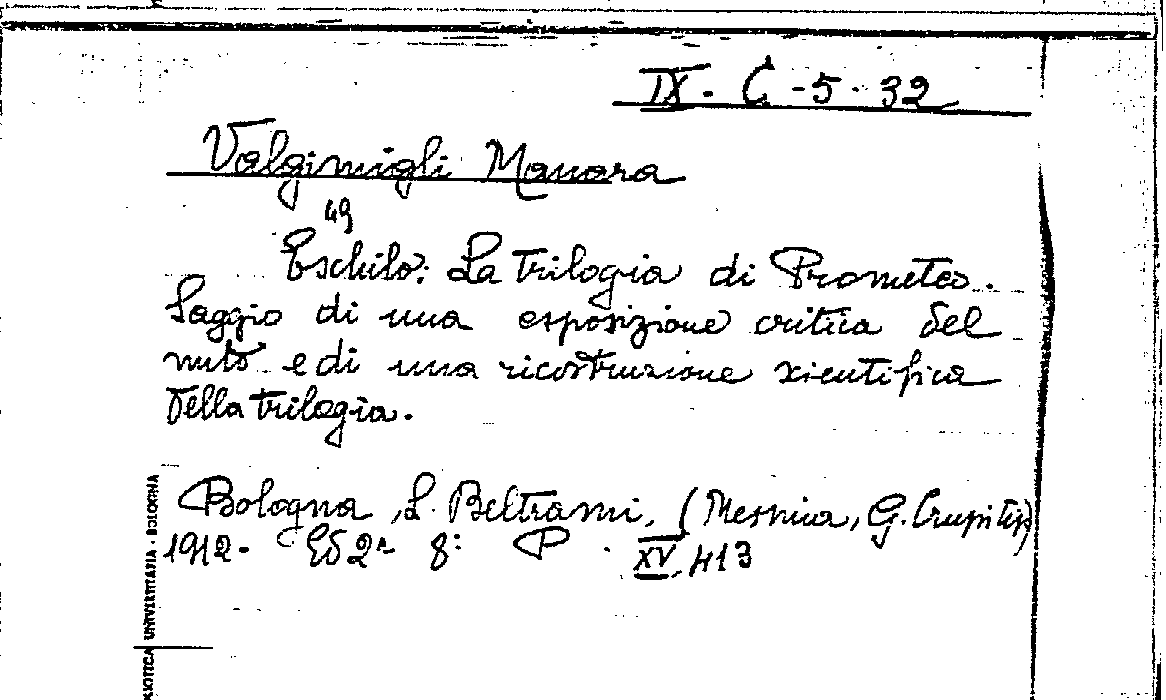 IX. C. - 5 - 32
Valgimigli Manara
49
Eschilo: La trilogia di Prometeo.
Saggio di una esposizione critica del
mito e di una ricostruzione scientifica
della trilogia.
Bologna, L. Beltrami, (Messina, G. Crupi tip)
1912 - Ed 2ª 8: P. XV, 413
BIBLIOTECA UNIVERSITARIA - BOLOGNA